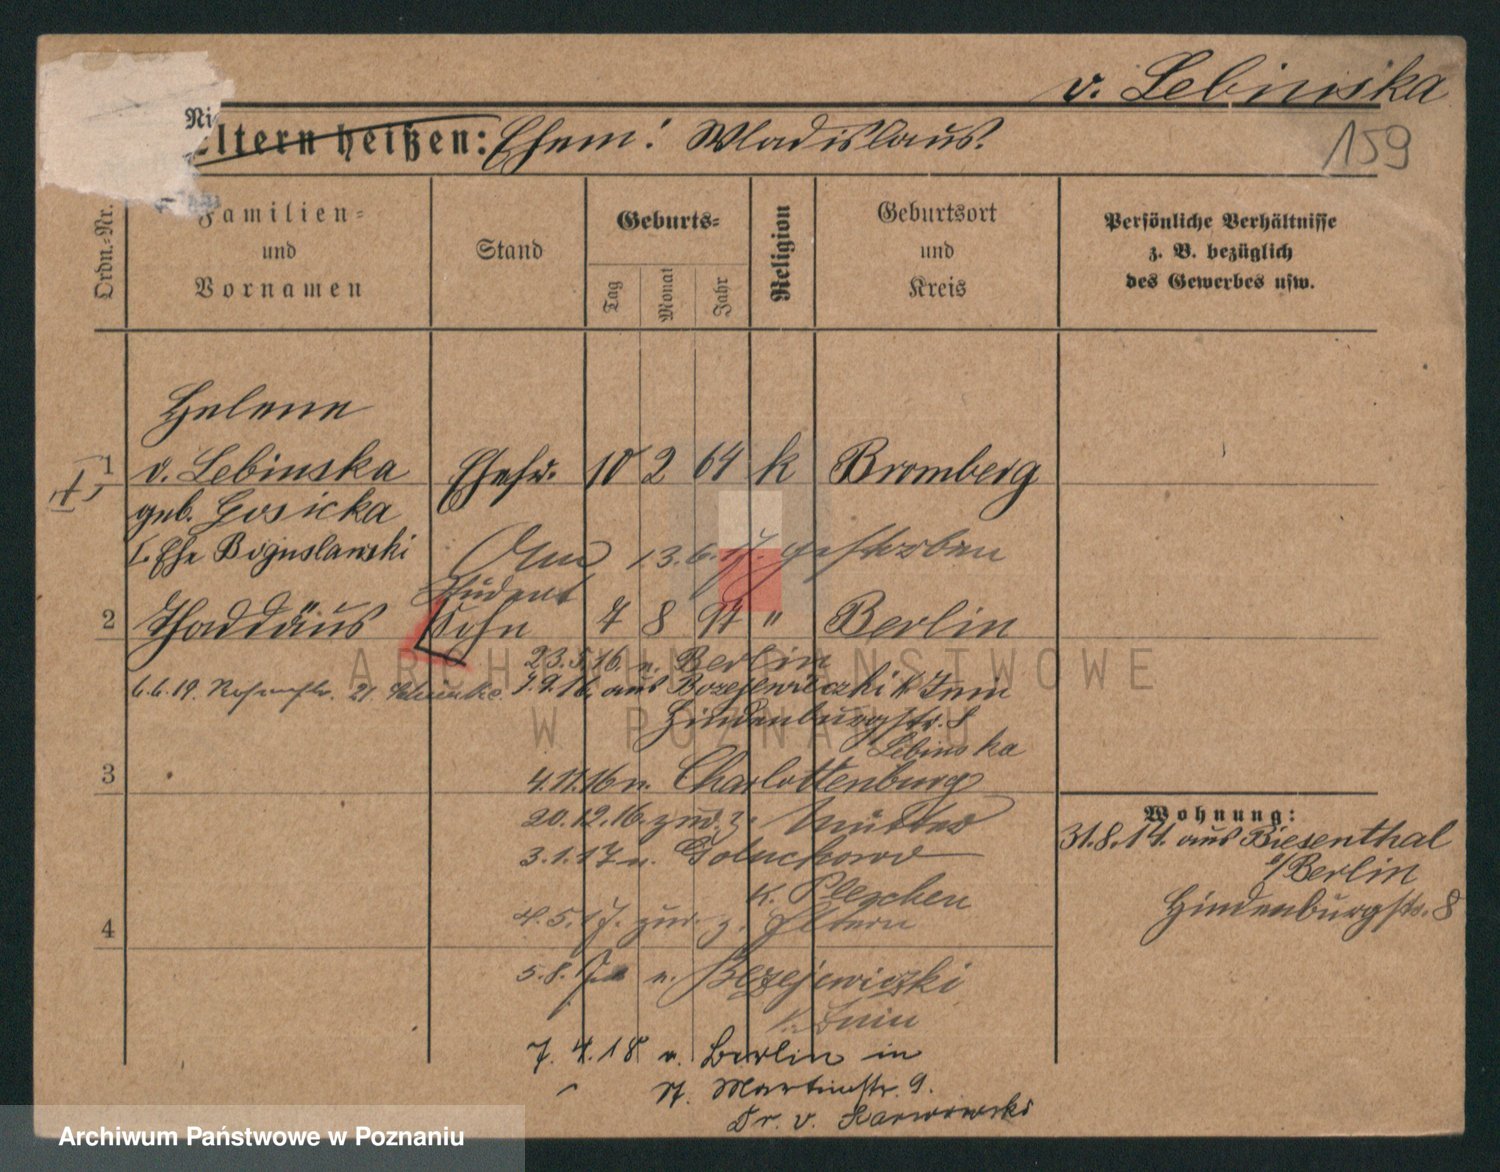 v. Lebinska
159
Ni
Eltern heißen: Ehem: Wladislaus.
Ordn.-Nr.
Familien-
und
Vornamen
Stand
Geburts-
Tag
Monat
Jahr
Religion
Geburtsort
und
Kreis
Persönliche Verhältnisse
z. B. bezüglich
des Gewerbes usw.
Helene
1 v. Lebinska Ehefr. 10 2 64 k Bromberg
geb. Gosicka
I. Ehe Boguslawski
Am 13.6.17. gestorben
Student
2 Thaddäus Sohn 7 8 97 " Berlin
23.5.16. n. Berlin
6.6.19. 21.
1.9.16. aus
Hindenburgstr. 8
Lebinska
3
4.11.16 n. Charlottenburg
20.12.16. zur. z. Mutter
3.1.17 n. Goluchow
K. Pleschen
4.5.17. zur. z. Eltern
4
5.8. n.
7.4.18 n. Berlin in
St. Martinstr. 9.
Dr. v. Karwowski
Wohnung:
31.8.14. aus Biesenthal
b/Berlin
Hindenburgstr. 8
ARCHIWUM PAŃSTWOWE
W POZNANIU
Archiwum Państwowe w Poznaniu